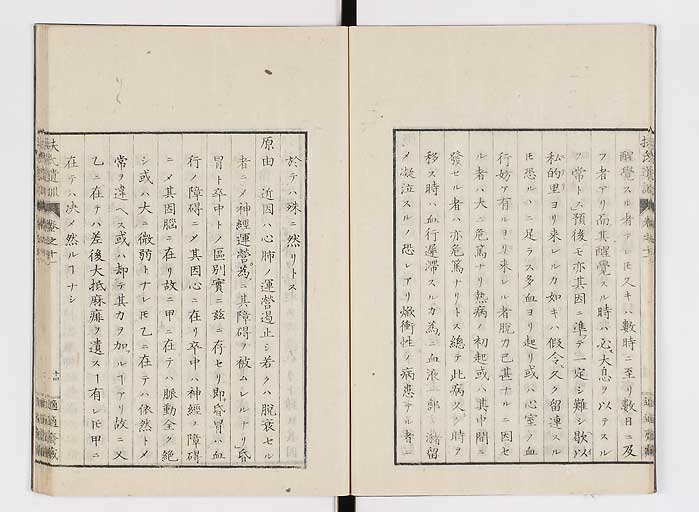 醒覺スル者アレ𪜈久キハ數時ニ至リ數日ニ及
フ者アリ而其醒覺スル時ハ必大息ヲ以テスル
ヲ常トス預後モ亦其因ニ準テ一定シ難シ歇以
私的里ヨリ来レルカ如キハ假令久ク留連スル
𪜈恐ルヽニ足ラス多血ヨリ起リ或ハ心室ノ血
行妨ケ有ルヨリ来レル者脱力己甚ナルニ因セ
ル者ハ大ニ危篤ナリ熱病ノ初起或ハ其中間ニ
發セル者ハ亦危篤ナリトス總テ此病久シ時ヲ
移ス時ハ血行遲滞スルカ為ニ血液一部ニ瀦留
メ凝泣スルノ恐レアリ焮衝性ノ病患テル者ニ
於テハ殊ニ然リトス
原由 近因ハ心肺ノ運營遏止シ若クハ脱衰セル
者ニメ神經運營為ニ其障碍ヲ被ムレルナリ昏
冒ト卒中トノ區別實ニ茲ニ存セリ即昏冒ハ血
行ノ障碍ニメ其因心ニ在リ卒中ハ神經ノ障碍
ニメ其因腦ニ在リ故ニ甲ニ在テハ脈動全ク絶
シ或ハ大ニ微弱トナレ𪜈乙ニ在テハ依然トメ
常ヲ違ヘス或ハ却テ其力ヲ加ルヿアリ故ニ又
乙ニ在テハ差後大抵麻痺ヲ遺スヿ有レ𪜈甲ニ
在テハ决メ然ルヿナシ
扶氏遺訓 卷之十一
十四
適適齋藏